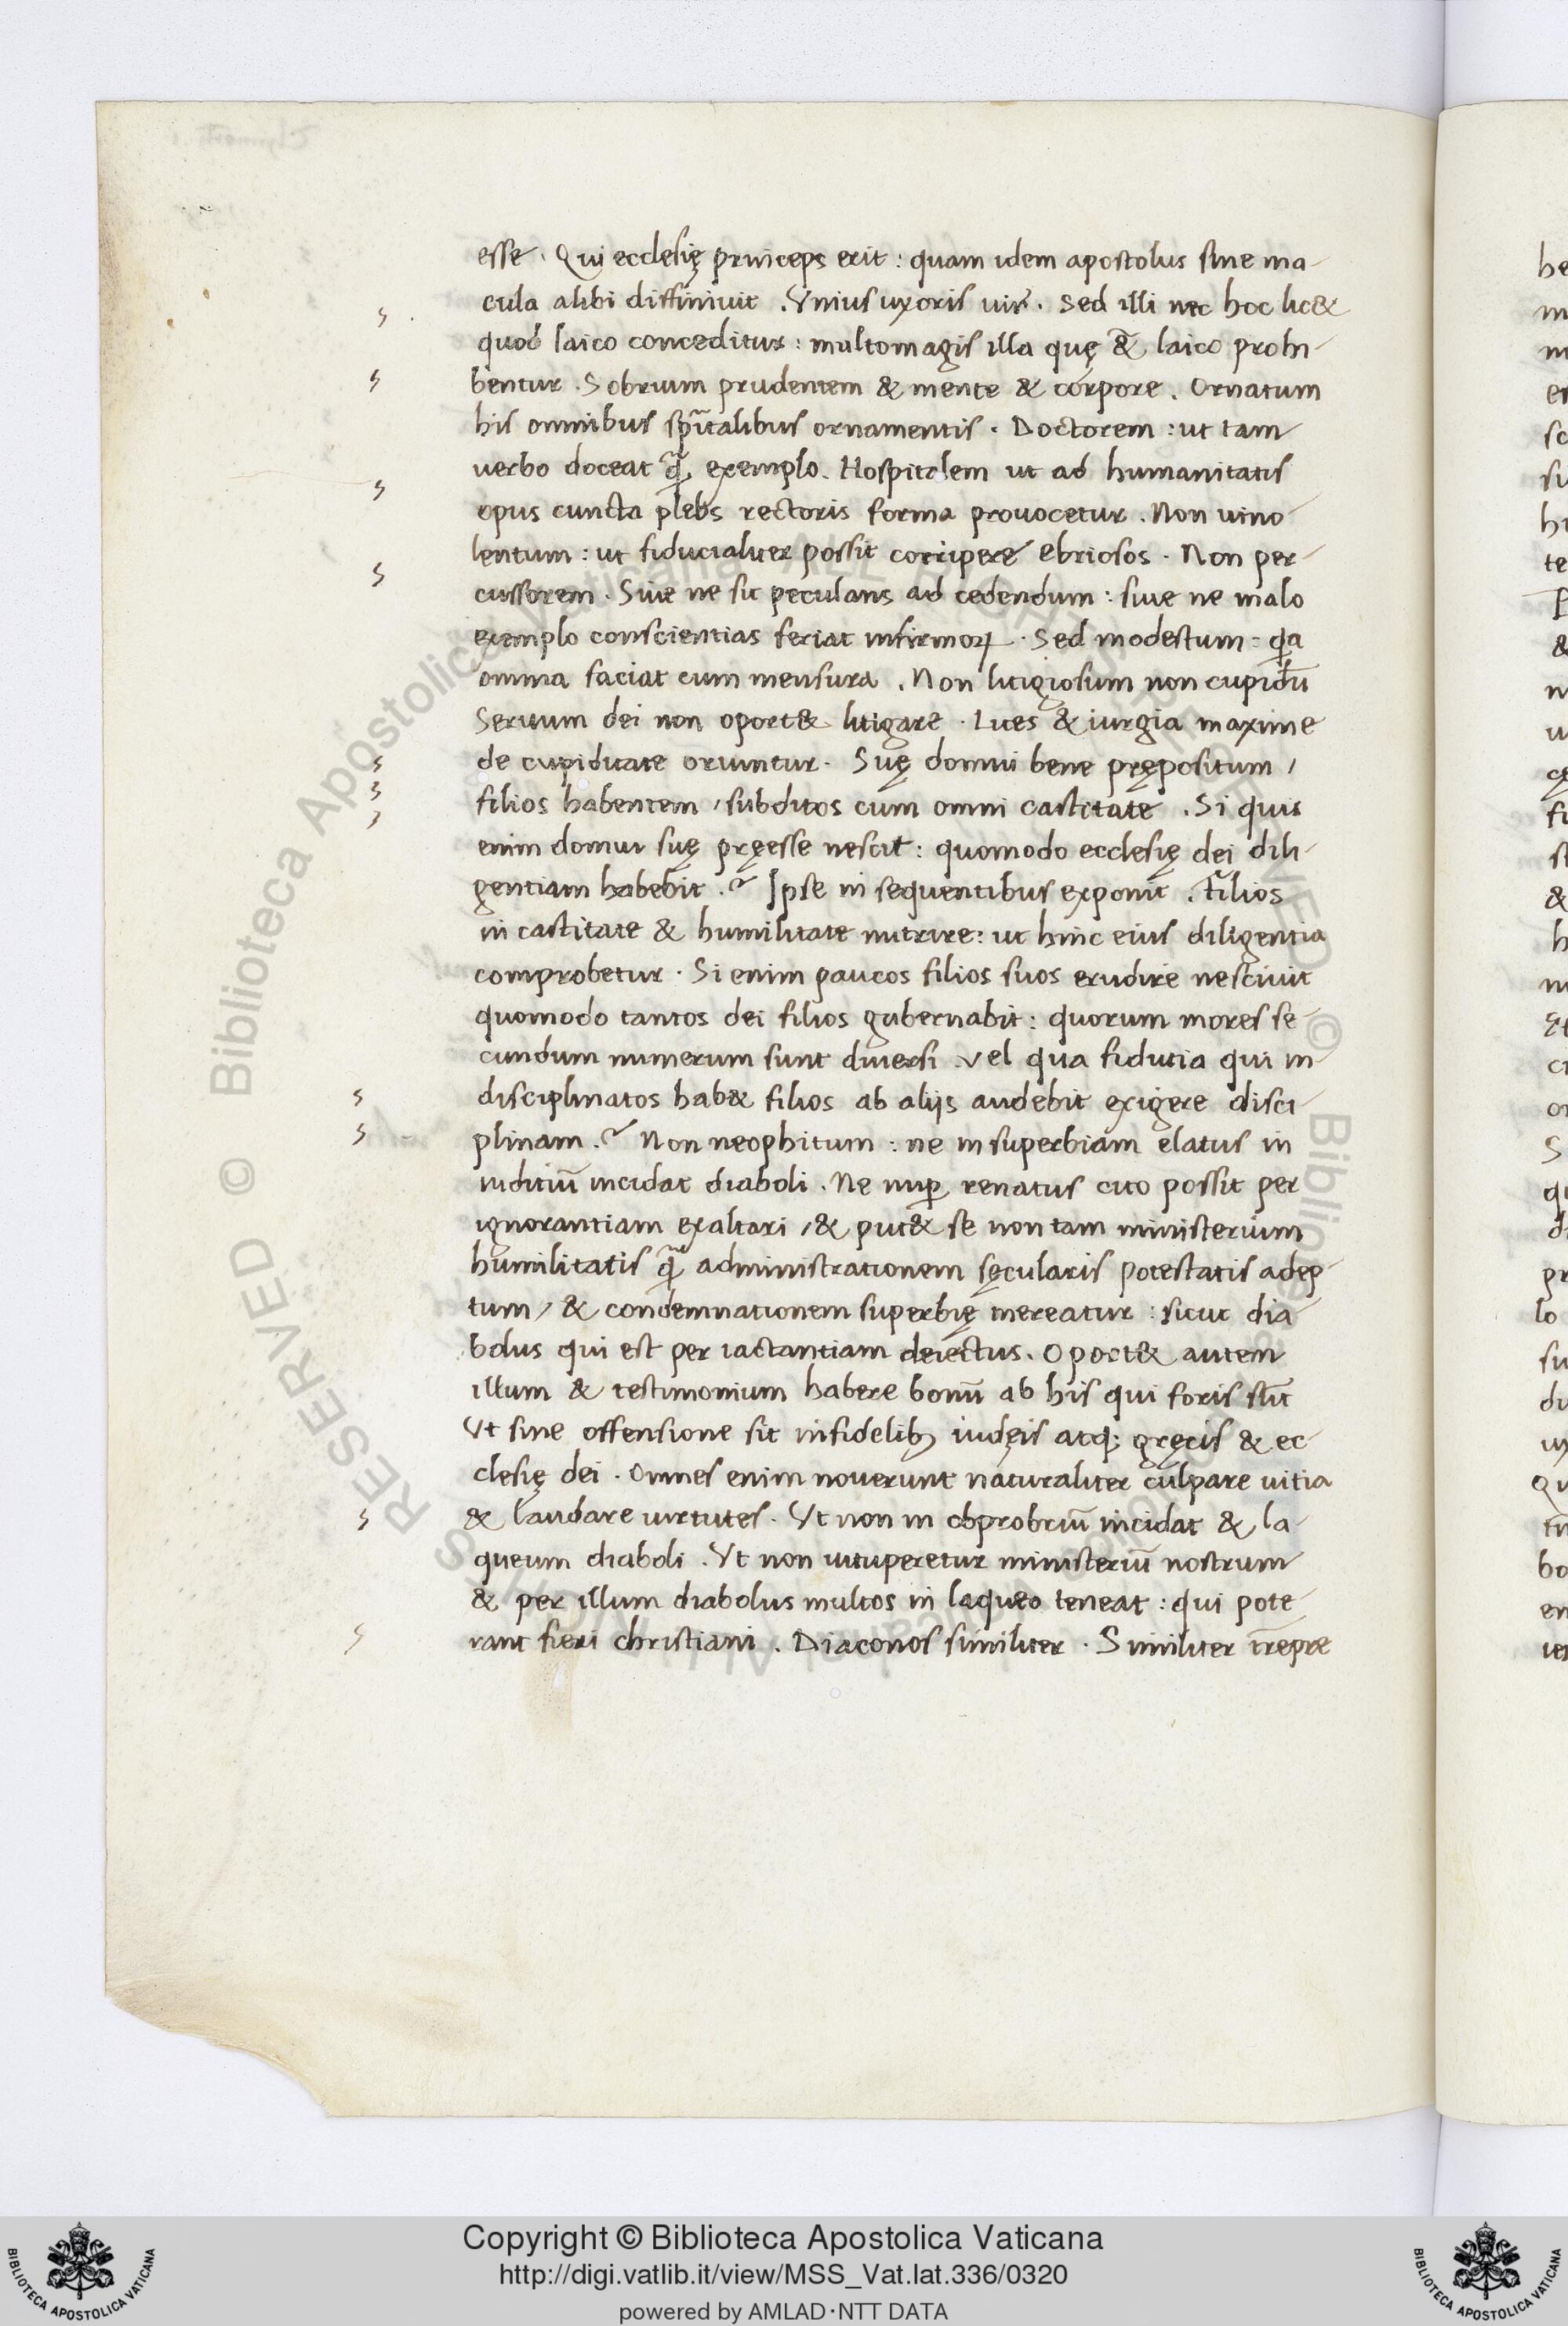 esse. Qui ecclesię princeps erit: quam idem apostolus sine ma-
cula alibi diffinivit. Vnius uxoris uir̄. Sed illi nec hoc lic&
quod laico conceditur: multo magis illa quę & laico prohi-
bentur. Sobrium prudentem & mente & corpore. Ornatum
his omnibus sp̄italibus ornamentis. Doctorem: ut tam
uerbo doceat q̄ exemplo. Hospitalem ut ad humanitatis
opus cuncta plebs rectoris forma prouocetur. Non uino-
lentum: ut fiducialiter possit corripere ebriosos. Non per-
cussorem. Siue ne sit peculans ad cedendum: siue ne malo
exemplo conscientias feriat infirmoꝝ. Sed modestum: qa
omnia faciat cum mensura. Non litigiosum non cupidū
Seruum dei non oport& litigare. Lites & iurgia maxime
de cupiditate oriuntur. Suę domui bene prępositum /
filios habentem / subditos cum omni castitate. Si quis
enim domui suę pręesse nescit: quomodo ecclesię dei dili-
gentiam habebit.? Ipse in sequentibus exponit. Filios
in castitate & humilitate nutrire: ut hinc eius diligentia
comprobetur. Si enim paucos filios suos erudire nesciuit
quomodo tantos dei filios gubernabit: quorum mores se-
cundum numerum sunt diuersi. Vel qua fidutia qui in-
disciplinatos hab& filios ab aliis audebit exigere disci-
plinam.? Non neophitum: ne in superbiam elatus in
iuditiū incidat diaboli. Ne nuꝑ renatus cito possit per
ignorantiam exaltari / & put& se non tam ministerium
humilitatis q̄ administrationem sęcularis potestatis adep-
tum / & condemnationem superbię mereatur: sicut dia-
bolus qui est per iactantiam deiectus. Oport& autem
illum & testimonium habere bonū ab his qui foris sūt
Vt sine offensione sit infidelibꝫ iudęis atqꝫ gręcis & ec-
clesię dei. Omnes enim nouerunt naturaliter culpare uitia
& laudare uirtutes. Vt non in obprobriū incidat & la-
queum diaboli. Vt non uituperetur ministeriū nostrum
& per illum diabolus multos in laqueo teneat: qui pote-
rant fieri christiani. Diaconos similiter. Similiter īrepre
Copyright © Biblioteca Apostolica Vaticana
http://digi.vatlib.it/view/MSS_Vat.lat.336/0320
powered by AMLAD·NTT DATA